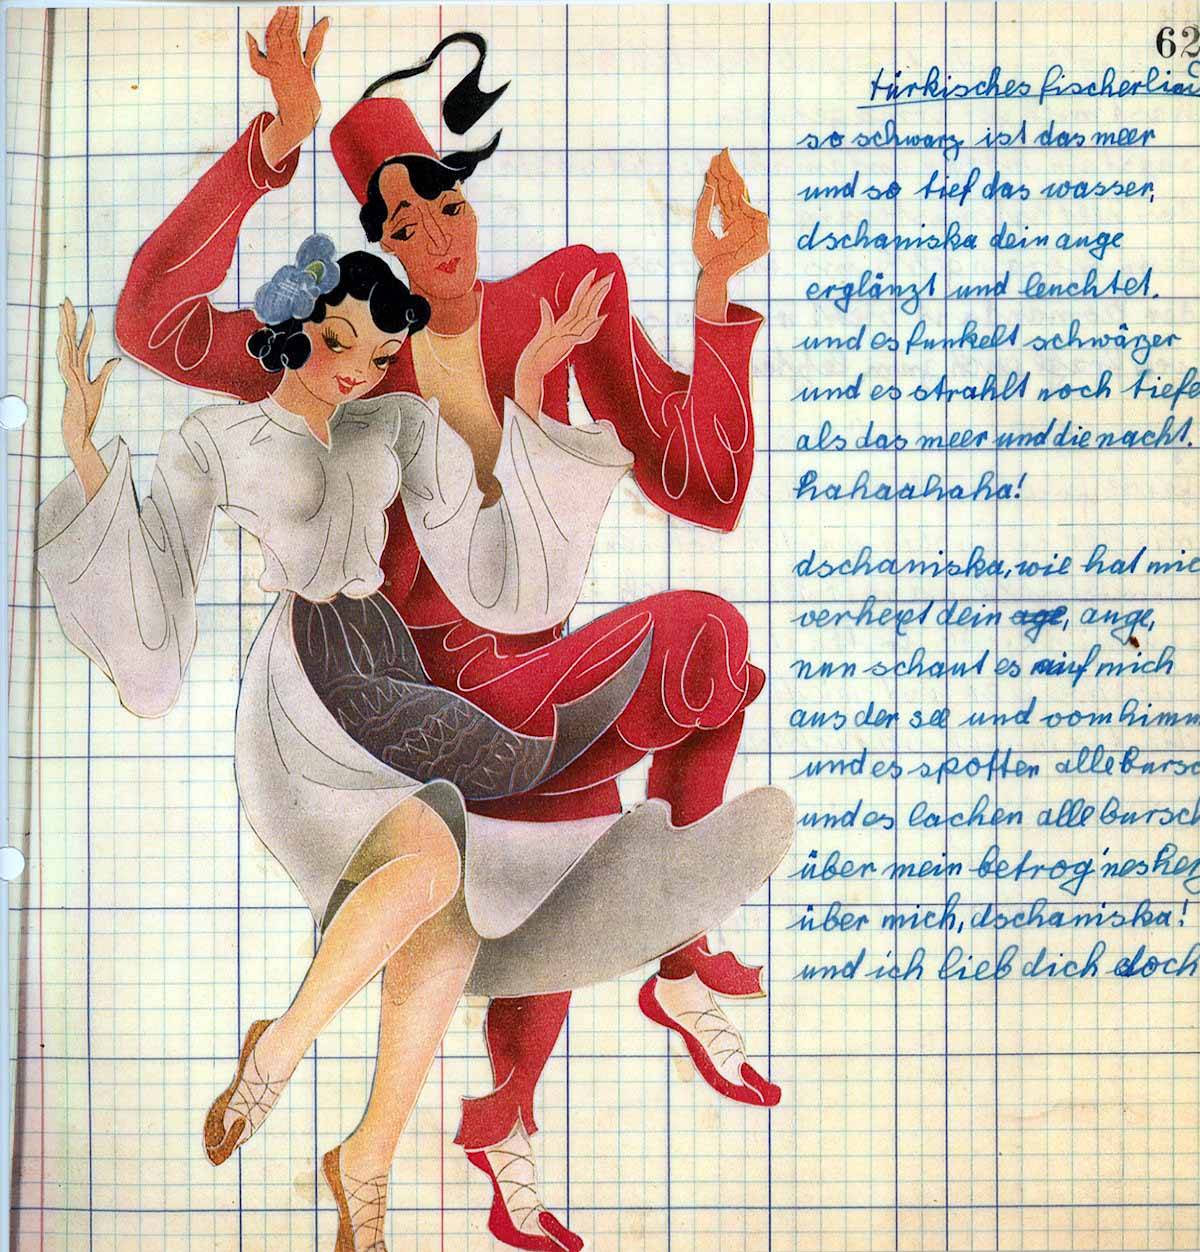 62
türkisches fischerlied
so schwarz ist das meer
und so tief das wasser,
dschaniska dein auge
erglänzt und leuchtet.
und es funkelt schwärzer
und es strahlt noch tiefe
als das meer und die nacht.
hahaahaha!
dschaniska, wie hat mic
verhext dein age, auge,
nun schaut es auf mich
aus der see und vom himm
und es spotten alle bursc
und es lachen alle bursch
über mein betrog'nes herz
über mich, dschaniska!
und ich lieb dich doch